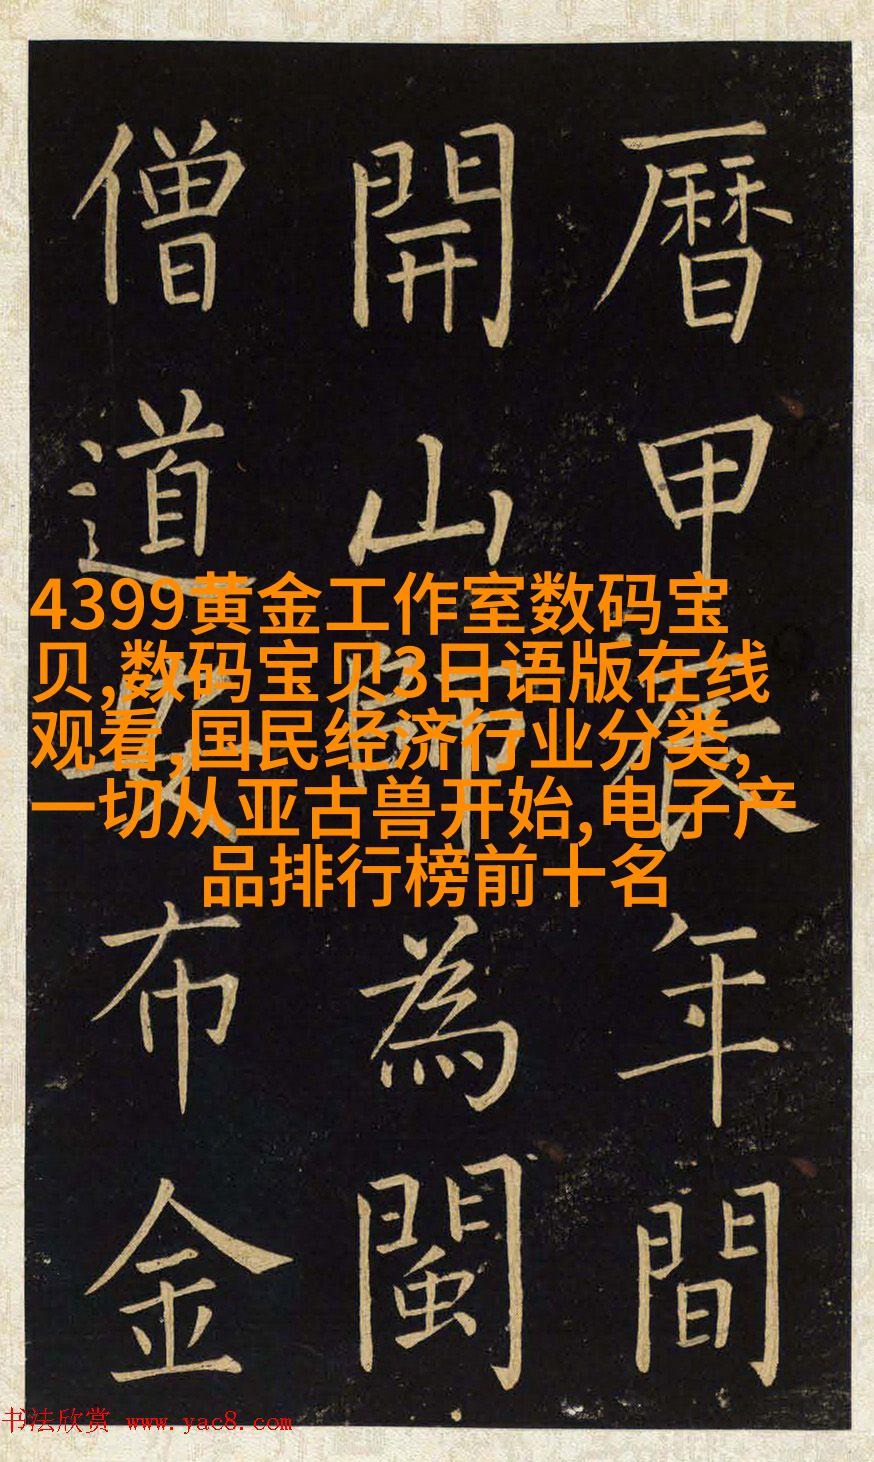 曆甲辰年間
開山師為閩
僧道布金
4399黄金工作室数码宝
贝,数码宝贝3日语版在线
观看,国民经济行业分类,
一切从亚古兽开始,电子产
品排行榜前十名
书法欣赏 www.yac8.com